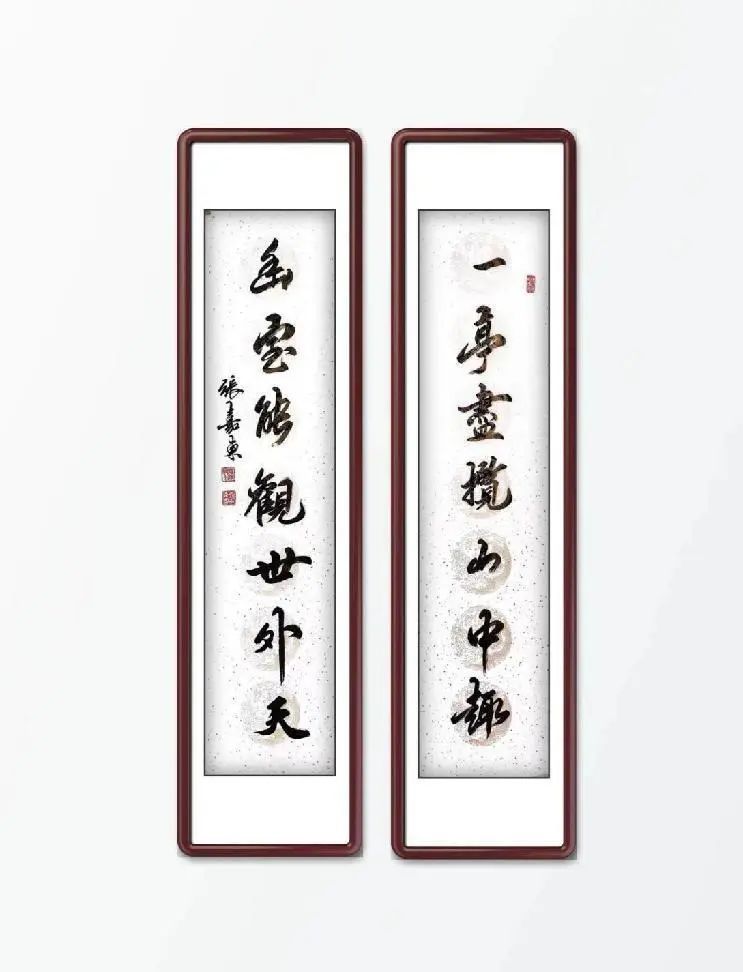 一亭盡攬山中趣
幽室能觀世外天
張嘉東